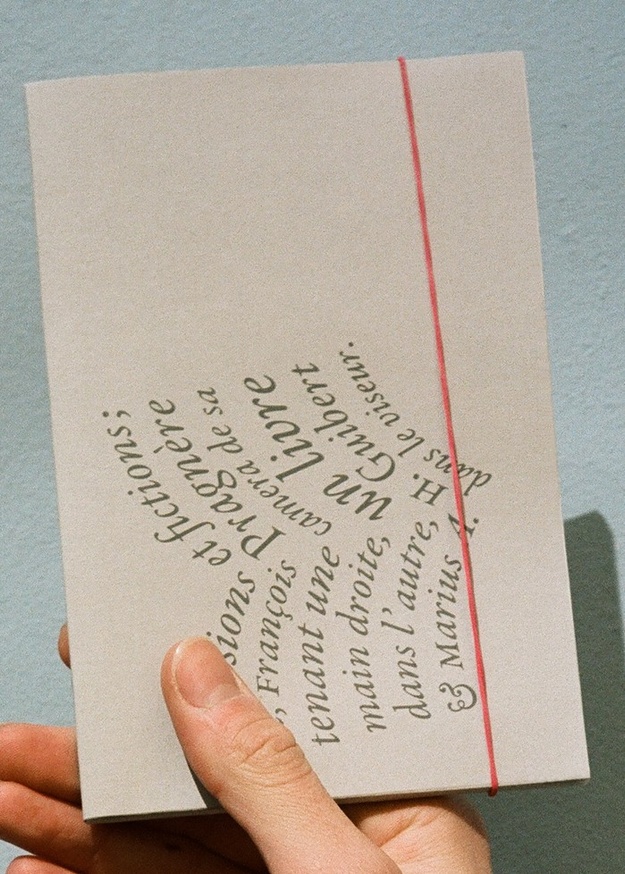 sions et fictions;
, François Pragnère
tenant une camera de sa
main droite, un livre
dans l’autre, H. Guibert
& Marius A. dans le viseur.